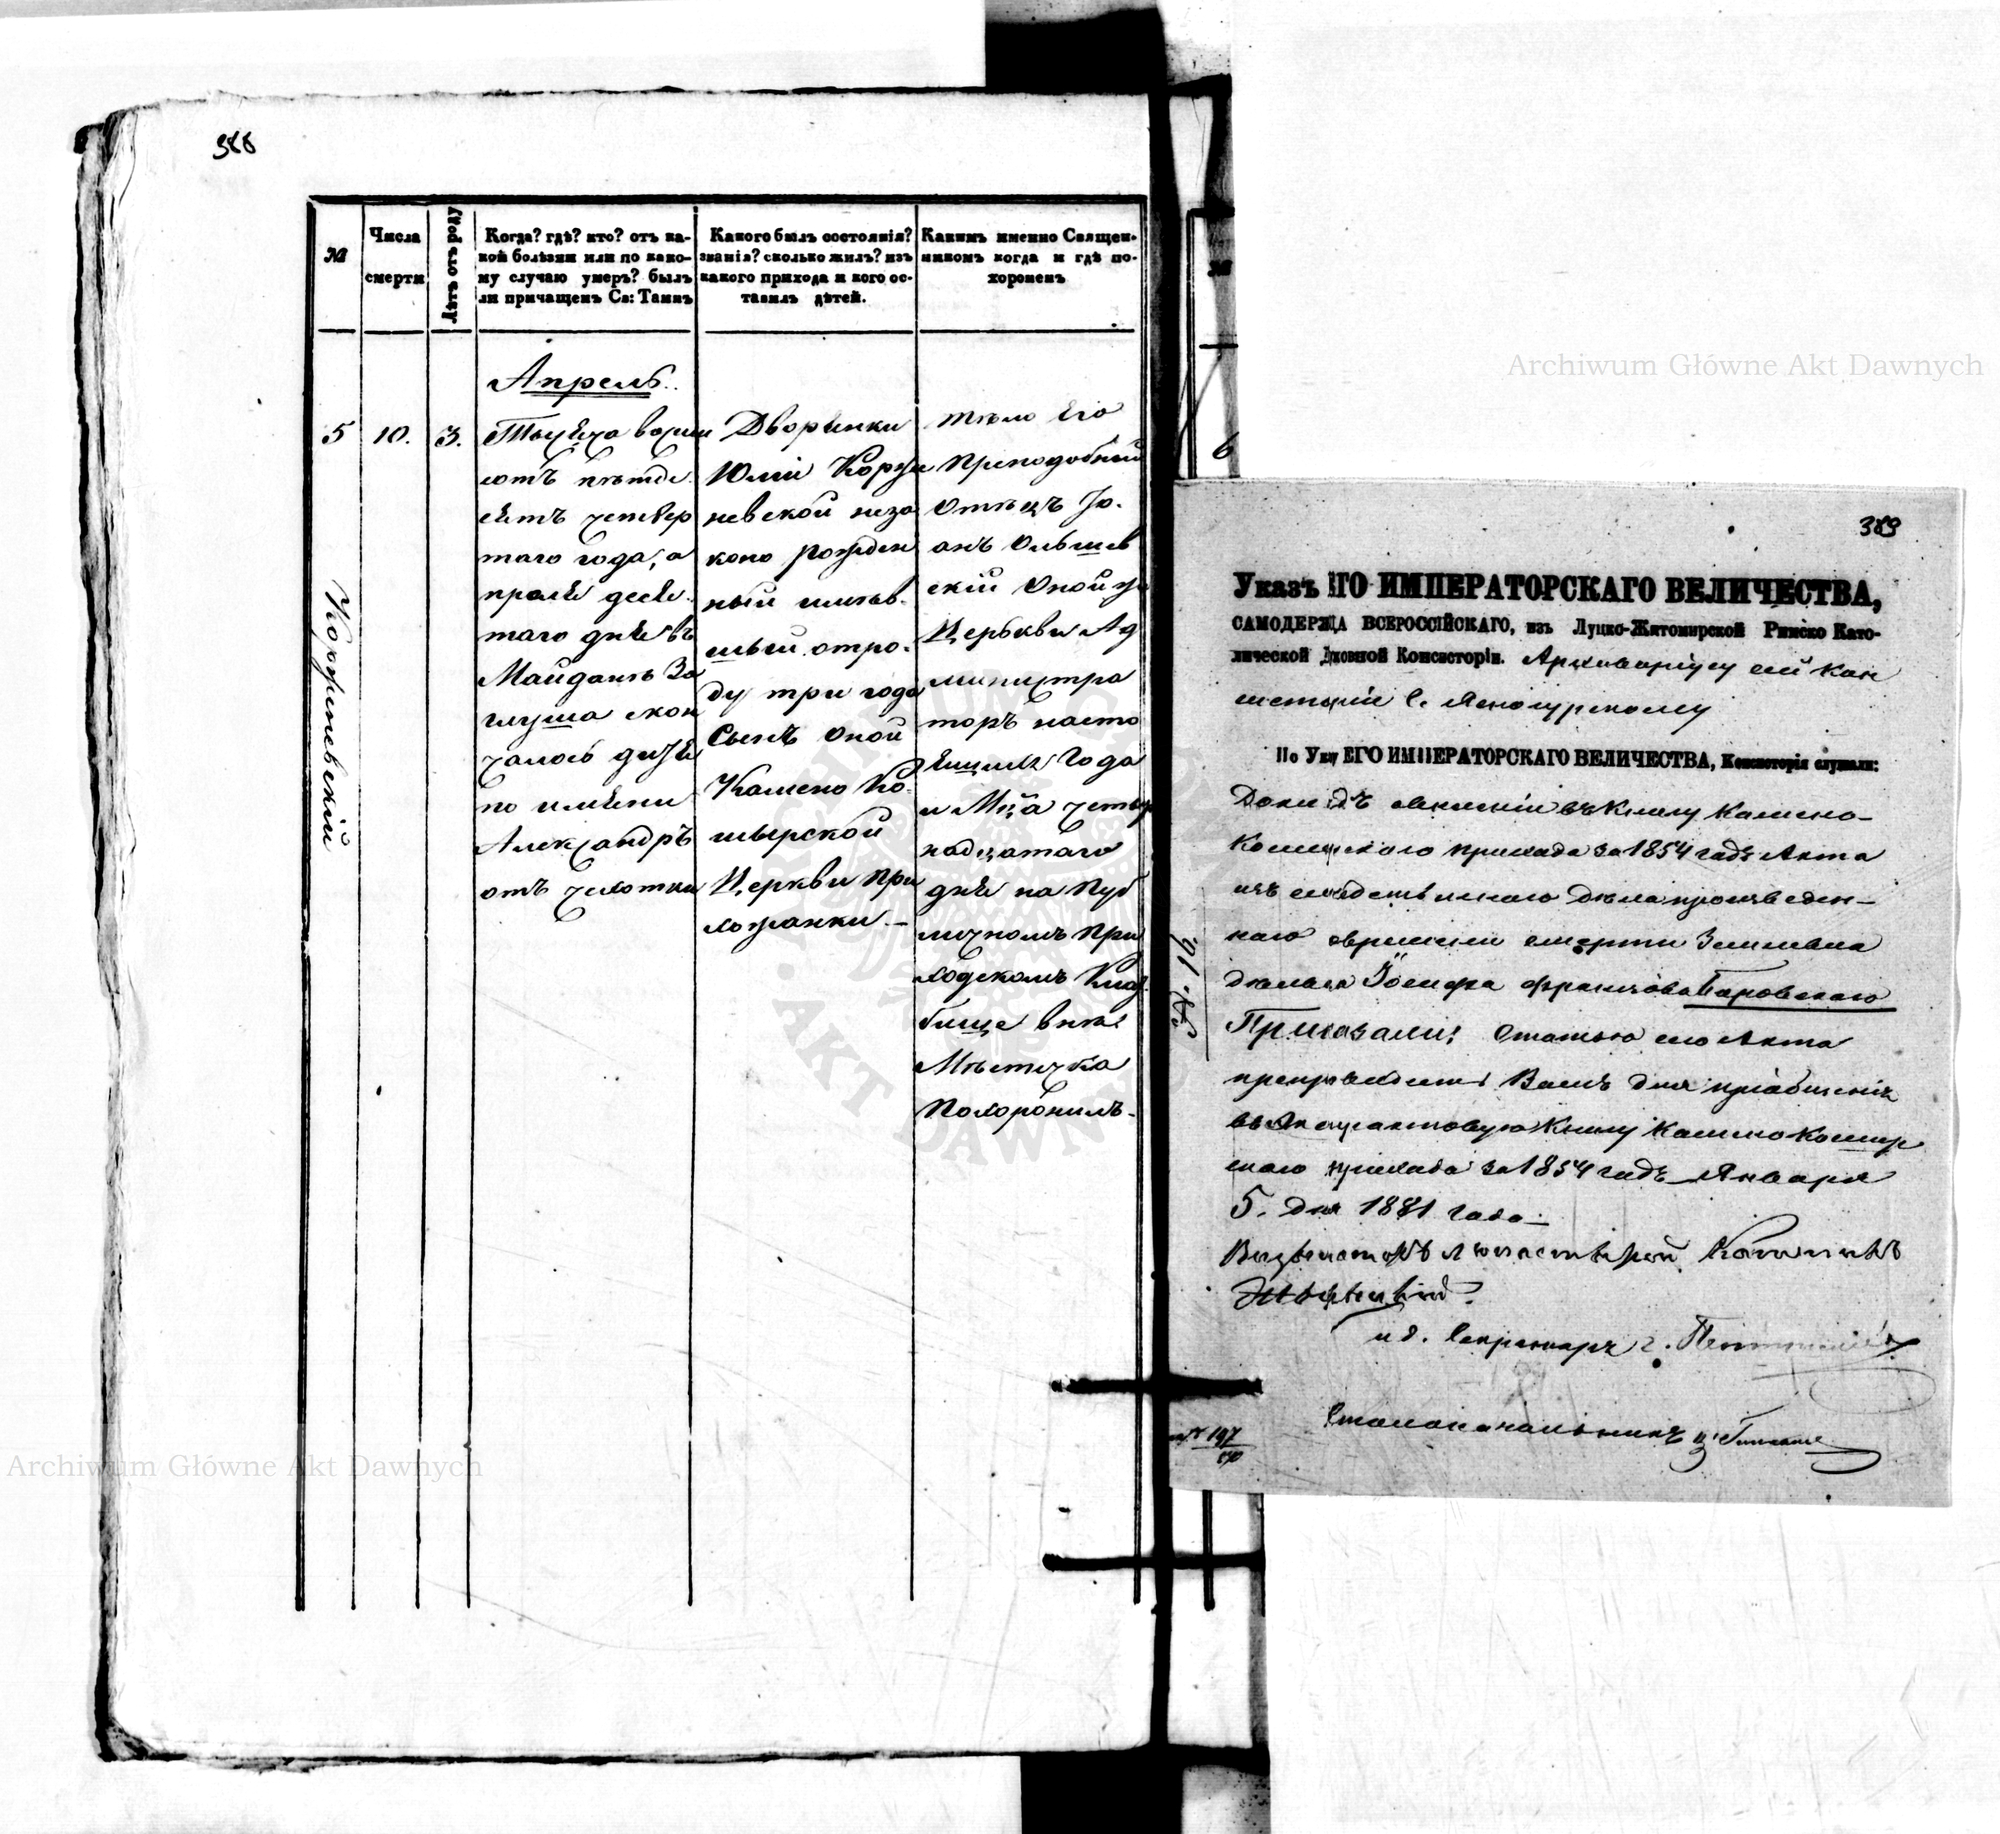 388
№
Числа
смерти
Лѣтъ отъ роду
Когда? гдѣ? кто? отъ ка-
кой болѣзни или по како-
му случаю умеръ? былъ
ли причащенъ Св: Таинъ
Какого былъ состоянія?
званія? сколько жилъ? изъ
какого прихода и кого ос-
тавилъ дѣтей.
Какимъ именно Священ-
никомъ когда и гдѣ по-
хороненъ
Апрель
5
10.
3.
Корженевскій
Тысяча восем
сотъ пятде
сятъ четвер
таго года, а
преля деся
таго дня въ
Майданѣ За
глуша скон
чалось дитя
по имени
Александръ
отъ чахотки
Дворянки
Юліи Корже
невской неза
конно рожден
ный имѣв
шый отро-
ду три года
Сынъ оной
Камено Ко-
шырской
Церкви При
хожанки —
тѣло Его
Преподобный
Отецъ Іо-
анъ Ольшев
скій Оной же
Церькви Ад
министра
торъ насто
ящаго Года
и Мца четыр
надцатаго
дня на Пуб
личномъ При
ходскомъ Клад
бище внѣ
Мѣстечка
Похоронилъ.
№
6
389
Указъ ЕГО ИМПЕРАТОРСКАГО ВЕЛИЧЕСТВА,
САМОДЕРЖЦА ВСЕРОССІЙСКАГО, изъ Луцко-Житомирской Римско Като-
лической Духовной Консисторіи. Архиваріусу сей Кон
систоріи С. Ясногурскому
По Указу ЕГО ИМПЕРАТОРСКАГО ВЕЛИЧЕСТВА, Консисторія слушали:
Докладъ о внесеніи въ Книгу Камено-
Коширскаго прихода за 1854 годъ Акта
изъ слѣдственнаго дѣла произведен-
наго о времени смерти Земшана
Іосифа Францова Баровскаго
Приказали: Статью сего Акта
препроводить Вамъ для пріобщенія
въ Книгу Камено Кошир
скаго прихода за 1854 годъ Января
5. дня 1881 года —
и д. Секретаря
Столоначальникъ
№ 16.
197
Archiwum Główne Akt Dawnych
Archiwum Główne Akt Dawnych